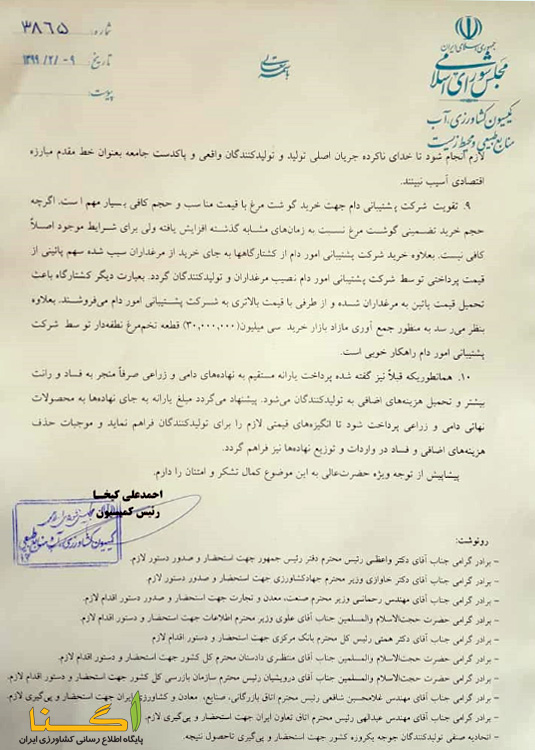 شماره: ۳۸۶۵
تاریخ: ۱۳۹۹/۲/۰۹
پیوست:
باسمه تعالی
جمهوری اسلامی ایران
مجلس شورای اسلامی
کمیسیون کشاورزی، آب
منابع طبیعی و محیط زیست
لازم انجام شود تا خدای ناکرده جریان اصلی تولید و تولیدکنندگان واقعی و پاکدست جامعه بعنوان خط مقدم مبارزه
اقتصادی آسیب نبینند.
۹. تقویت شرکت پشتیبانی دام جهت خرید گوشت مرغ با قیمت مناسب و حجم کافی بسیار مهم است. اگرچه
حجم خرید تضمینی گوشت مرغ نسبت به زمان‌های مشابه گذشته افزایش یافته ولی برای شرایط موجود اصلاً
کافی نیست. بعلاوه خرید شرکت پشتیبانی امور دام از کشتارگاهها به جای خرید از مرغداران سبب شده سهم پائینی از
قیمت پرداختی توسط شرکت پشتیبانی امور دام نصیب مرغداران و تولیدکنندگان گردد. بعبارت دیگر کشتارگاه باعث
تحمیل قیمت پائین به مرغداران شده و از طرفی با قیمت بالاتری به شرکت پشتیبانی امور دام می‌فروشند. بعلاوه
بنظر می‌رسد به منظور جمع آوری مازاد بازار خرید سی میلیون(۳۰,۰۰۰,۰۰۰) قطعه تخم‌مرغ نطفه‌دار توسط شرکت
پشتیبانی امور دام راهکار خوبی است.
۱۰. همانطوریکه قبلاً نیز گفته شده پرداخت یارانه مستقیم به نهاده‌های دامی و زراعی صرفاً منجر به فساد و رانت
بیشتر و تحمیل هزینه‌های اضافی به تولیدکنندگان می‌شود. پیشنهاد می‌گردد مبلغ یارانه به جای نهاده‌ها به محصولات
نهائی دامی و زراعی پرداخت شود تا انگیزه‌های قیمتی لازم را برای تولیدکنندگان فراهم نماید و موجبات حذف
هزینه‌های اضافی و فساد در واردات و توزیع نهاده‌ها نیز فراهم گردد.
پیشاپیش از توجه ویژه حضرت‌عالی به این موضوع کمال تشکر و امتنان را دارم.
احمدعلی کیخا
رئیس کمیسیون
مجلس شورای اسلامی
کمیسیون کشاورزی، آب و منابع طبیعی
رونوشت:
- برادر گرامی جناب آقای دکتر واعظی رئیس محترم دفتر رئیس جمهور جهت استحضار و صدور دستور لازم.
- برادر گرامی جناب آقای دکتر خاوازی وزیر محترم جهادکشاورزی جهت استحضار و صدور دستور لازم.
- برادر گرامی جناب آقای مهندس رحمانی وزیر محترم صنعت، معدن و تجارت جهت استحضار و صدور دستور اقدام لازم.
- برادر گرامی حضرت حجت‌الاسلام والمسلمین جناب آقای علوی وزیر محترم اطلاعات جهت استحضار و دستور اقدام لازم.
- برادر گرامی جناب آقای دکتر همتی رئیس کل محترم بانک مرکزی جهت استحضار و دستور اقدام لازم.
- برادر گرامی حضرت حجت‌الاسلام والمسلمین جناب آقای منتظری دادستان محترم کل کشور جهت استحضار و دستور اقدام لازم.
- برادر گرامی حضرت حجت‌الاسلام والمسلمین جناب آقای درویشیان رئیس محترم سازمان بازرسی کل کشور جهت استحضار و دستور اقدام لازم.
- برادر گرامی جناب آقای مهندس غلامحسین شافعی رئیس محترم اتاق بازرگانی، صنایع، معادن و کشاورزی ایران جهت استحضار و پی‌گیری لازم.
- برادر گرامی جناب آقای مهندس عبدالهی رئیس محترم اتاق تعاون ایران جهت استحضار و پی‌گیری لازم.
- اتحادیه صنفی تولیدکنندگان جوجه یکروزه کشور جهت استحضار و پی‌گیری تاحصول نتیجه.
اگنا
پایگاه اطلاع رسانی کشاورزی ایران